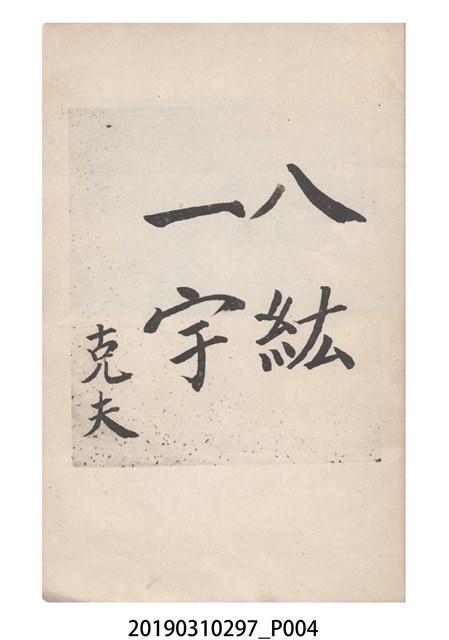 八紘
一宇
克夫
20190310297_P004